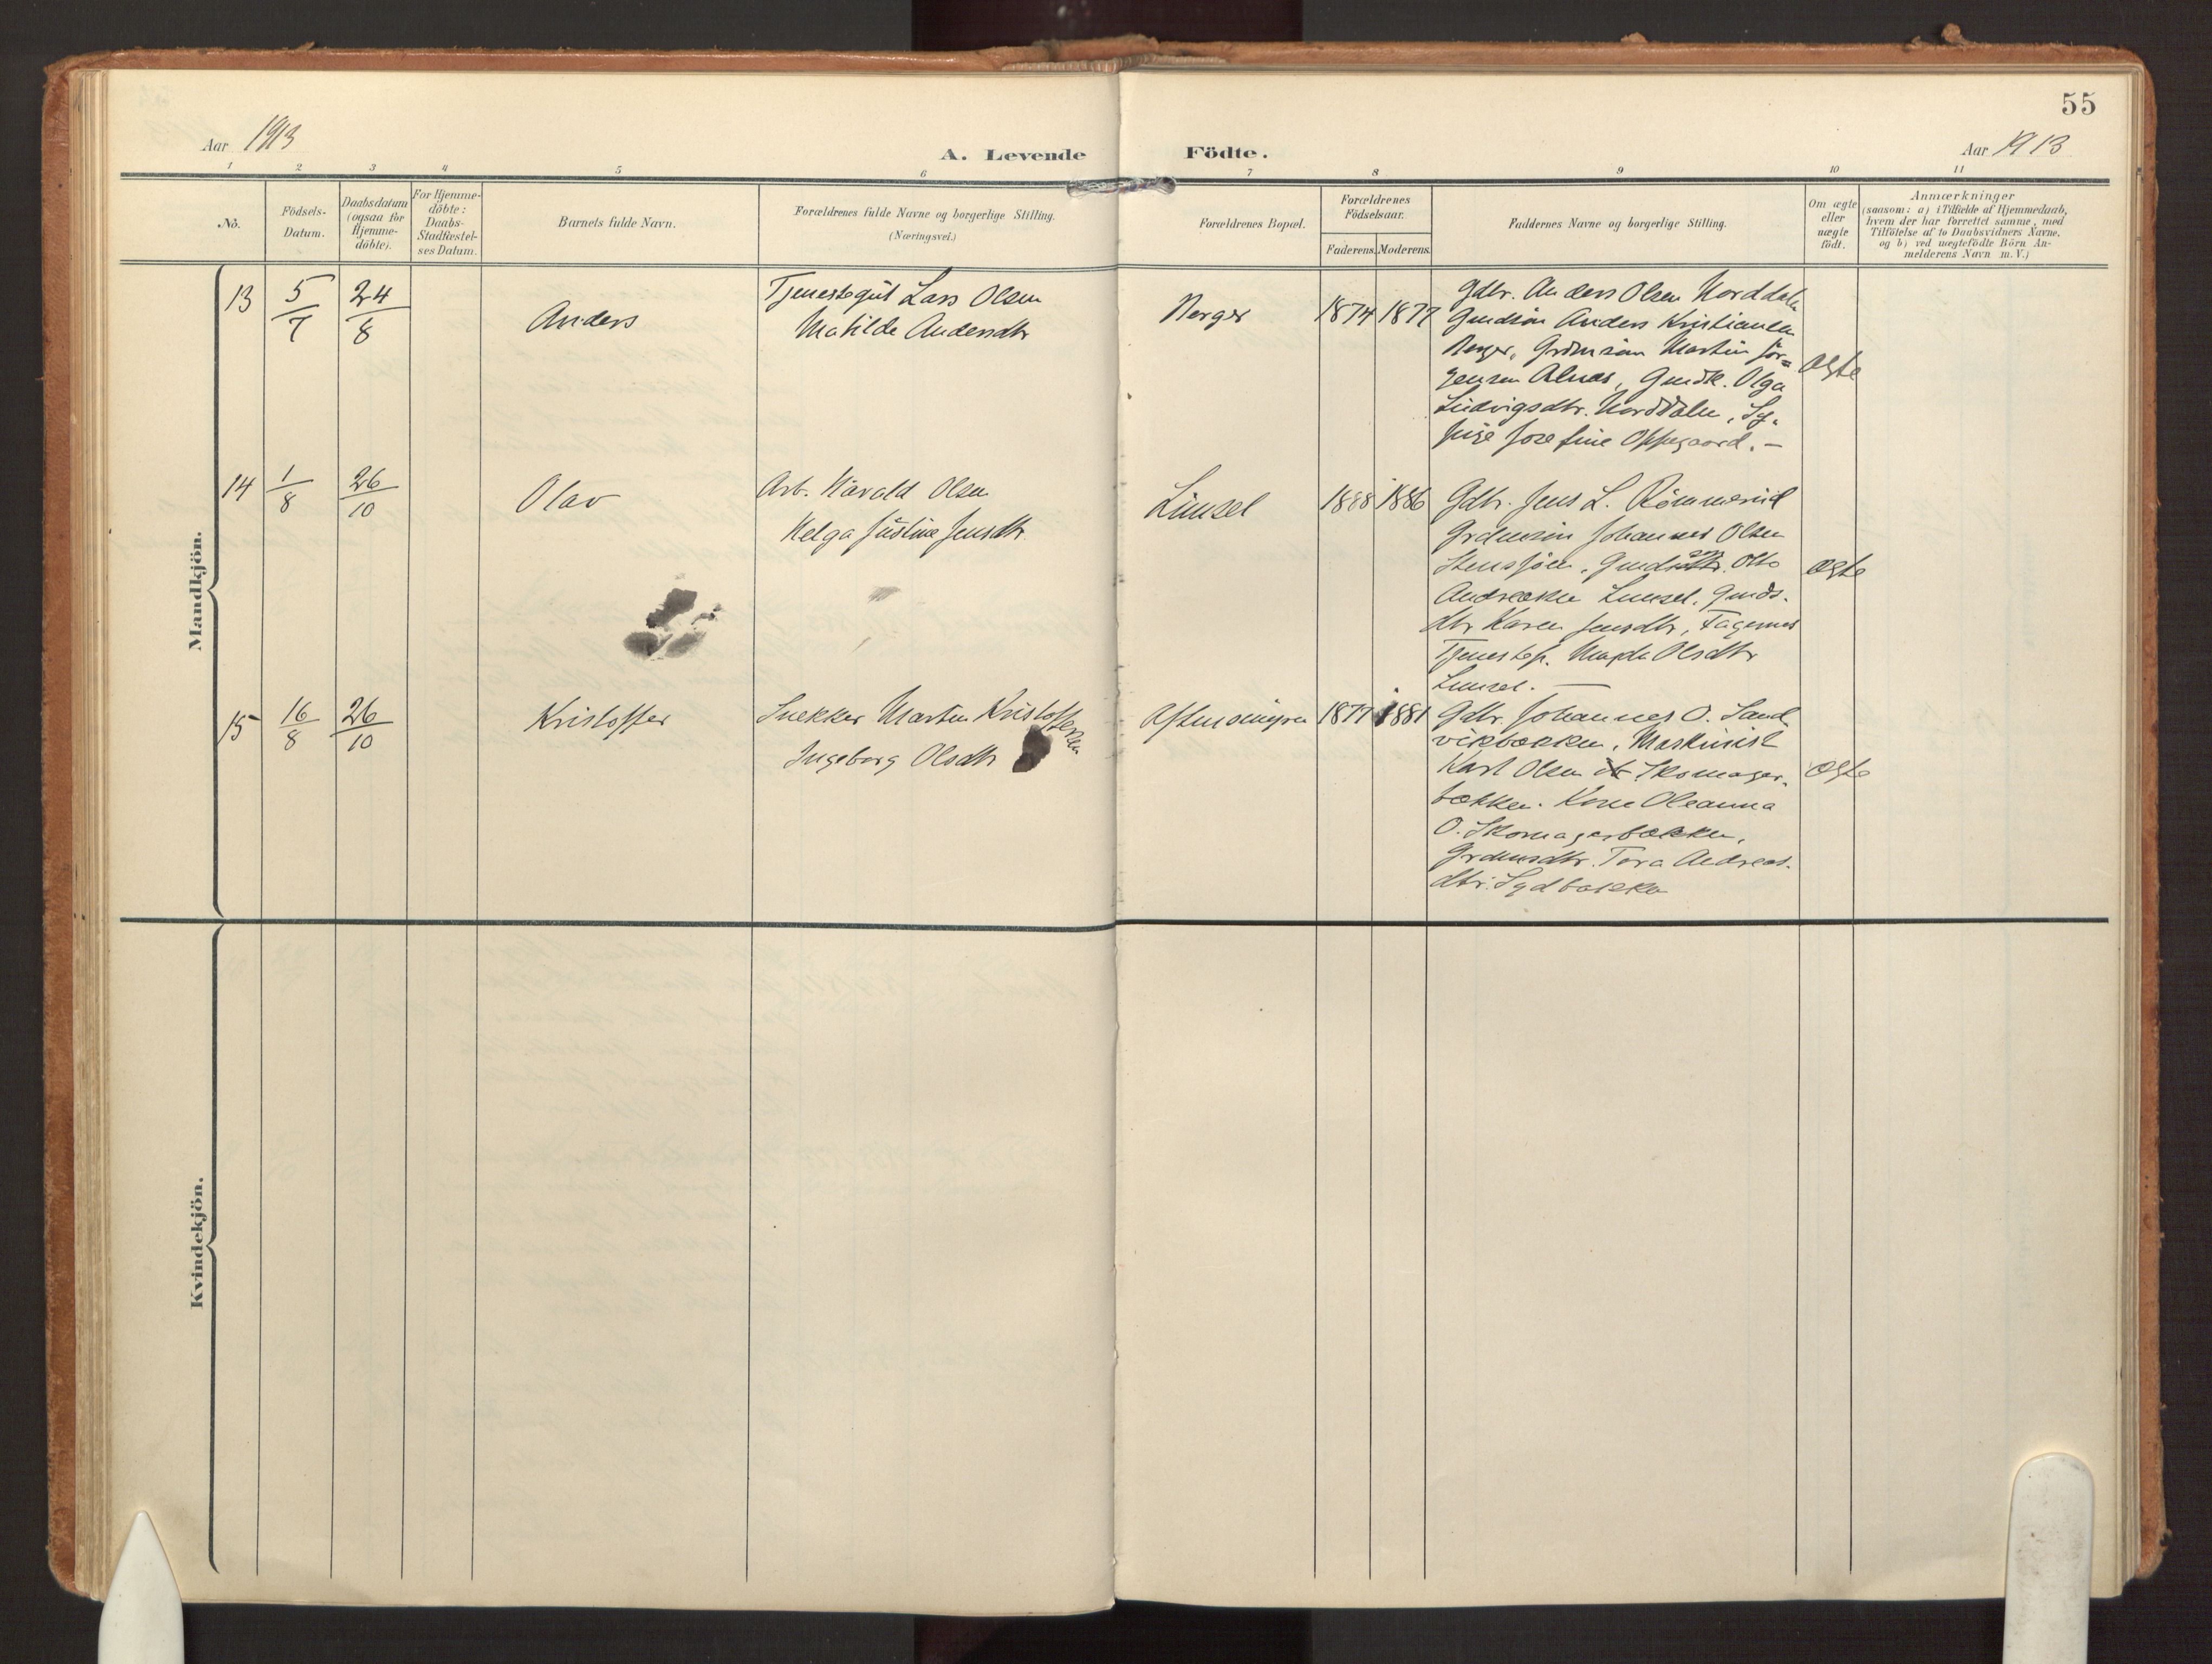 55
Aar 1913
A. Levende Födte.
Aar 1913
1 2 3 4 5 6 7 8 9 10 11
No.
Födsels-
Datum.
Daabsdatum
(ogsaa for
Hjemme-
döbte).
For Hjemme-
döbte:
Daabs-
Stadfæstel-
ses Datum.
Barnets fulde Navn.
Forældrenes fulde Navne og borgerlige Stilling.
(Næringsvei.)
Forældrenes Bopæl.
Forældrenes
Födselsaar.
Faderens. Moderens.
Faddernes Navne og borgerlige Stilling.
Om ægte
eller
uægte
födt.
Anmærkninger
(saasom: a) i Tilfælde af Hjemmedaab,
hvem der har forrettet samme, med
Tilföielse af to Daabsvidners Navne,
og b) ved uægtefödte Börn An-
melderens Navn m. V.)
Mandkjön.
13 5/7 24/8 Anders
Tjenestegut Lars Olsen
Matilde Andersdtr
Berger 1874 1877
Gdbr. Anders Olsen Norddalen
Anders Kristiansen
Berger, Martin Jör=
gensen Alnæs, Olga
Ludvigsdtr. Norddalen, Sy-
pige Josefine Oppegaard. —
ægte
14 1/8 26/10 Olav
Arb. Harald Olsen
Helga Justine Jensdtr.
Linsel 1888 1886
Gdbr. Jens L. Römmerud
Johannes Olsen
Stensjöen, Otto
Andreasen
dtr Karen Jensdtr, Fagernes
Tjenestep. Magda Olsdtr
—
ægte
15 16/8 26/10 Kristoffer
Snekker Martin Kristoffersen
Ingeborg Olsdtr
1877 1881
Gdbr. Johannes O. Sand
vikbækken, Maskinist
Karl Olsen Skomager-
bækken. Kone Oleanna
O. Skomagerbækken,
Tora Andreas-
dtr. Sydbakka
ægte
Kvindekjön.